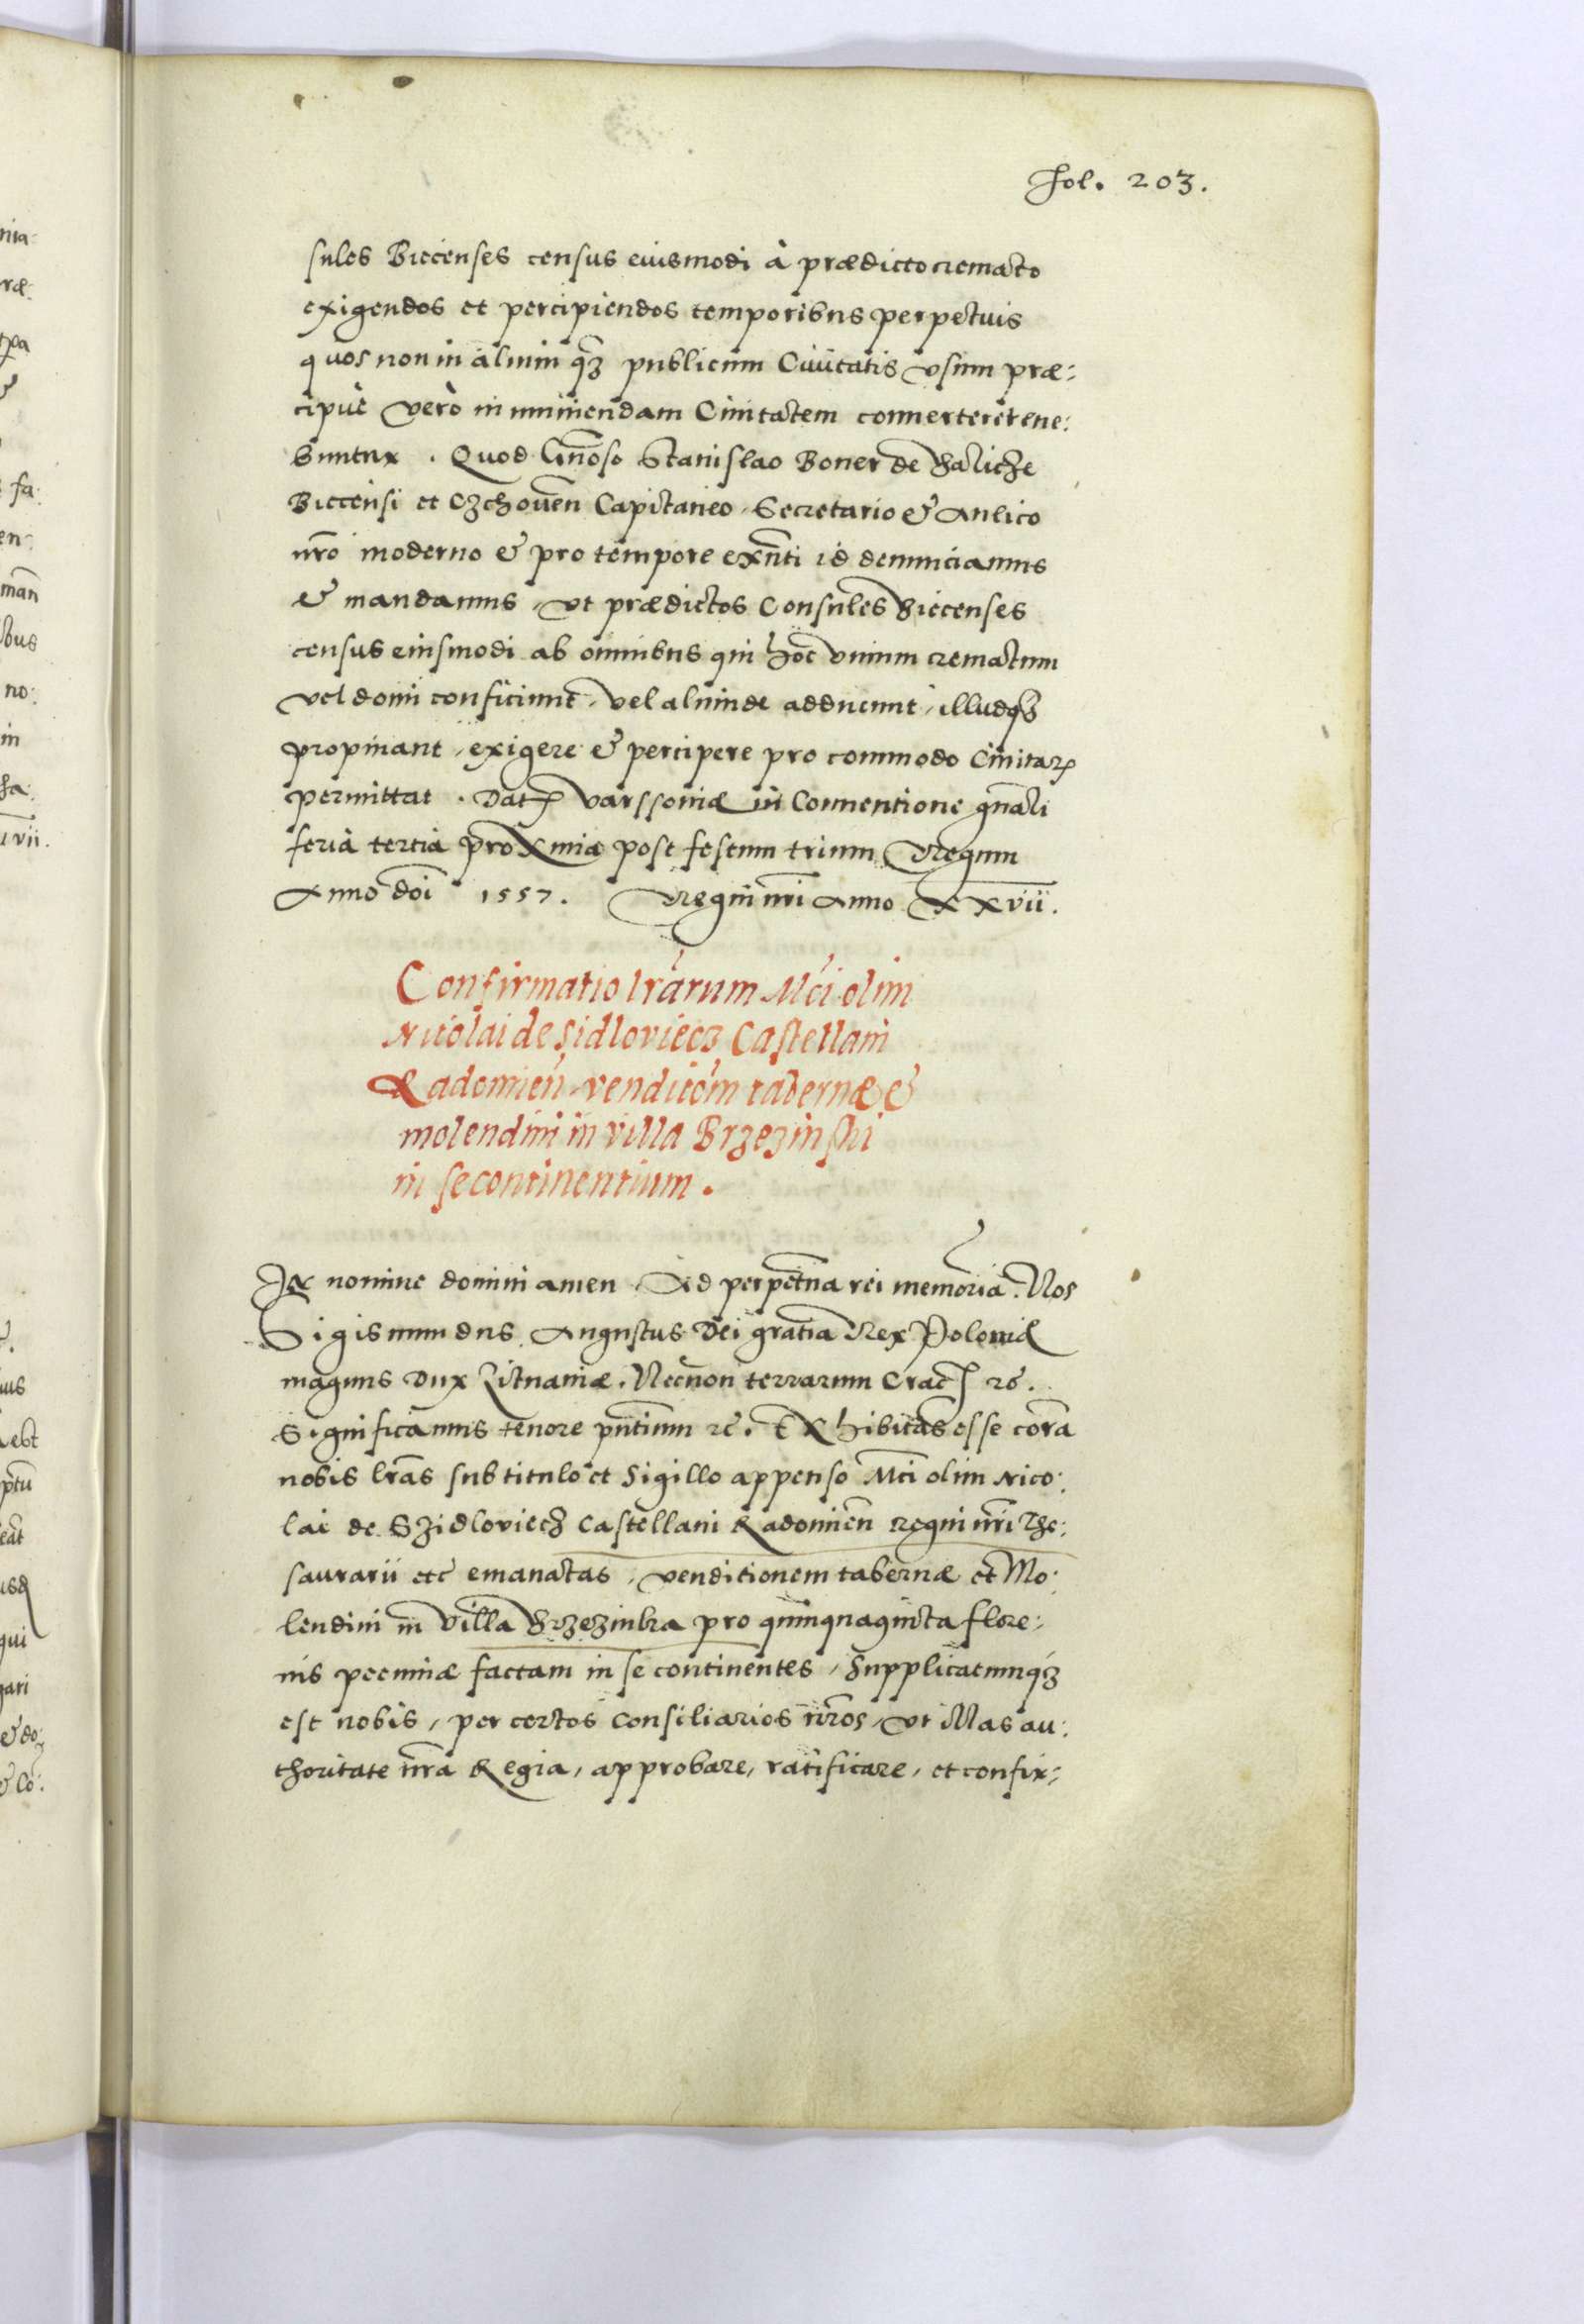 fol. 203.
sules Biecenses census eiusmodi à prædicto cremato
exigendos et percipiendos temporibus perpetuis
quos non in alium q̃ꝫ publicum Ciuitatis vsum præ:
cipuè verò in muniendam Ciuitatem conuertere tene:
buntur . Quod Gñoso Stanislao Boner de Balicze
Biecensi et Czchoveñ Capitaneo, Secretario & Aulico
nr̃o moderno & pro tempore exñti id denunciamus
& mandamus, vt prædictos Consules Biecenses
census eiusmodi ab omnibus qui hoc vinum crematum
vel domi conficiunt, vel aliunde adducunt, illudqꝫ
propinant, exigere & percipere pro commodo Ciuitaꝭ
permittat . Datꝭ Varssouiæ in Conuentione gñali
feria tertia proxima post festum trium Regum
Anno dõi 1557. Regni nr̃i Anno xxvii.
Confirmatio lr̃arum Mci olim
Nicolai de Sidloviecz Castellani
Radomieñ venditiõm tabernæ &
molendini in villa Brzezinski
in se continentium .
In nomine domini amen . Ad perpetua rei memoriã. Nos
Sigismundus Augustus Dei gratia Rex Poloniæ
magnus Dux Litnaniæ . Necnon terrarum Cracꝭ ꝛc̃.
Significamus tenore pñtium ꝛc̃. Exhibitas esse corã
nobis lr̃as sub titulo et Sigillo appenso Mci olim Nico:
lai de Szidloviecz Castellani Radomieñ regni nr̃i The:
saurarii etc emanatas, venditionem tabernæ et Mo:
lendini in villa Brzezinka pro quinquaginta flore:
nis pecuniæ factam in se continentes, Supplicatumqꝫ
est nobis, per certos Consiliarios nr̃os, vt illas au:
thoritate nr̃a Regia, approbare, ratificare, et confir: